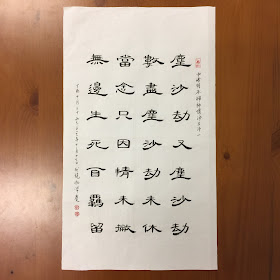 塵沙劫又塵沙劫
數盡塵沙劫未休
當念只因情未撇
無邊生死自羈留